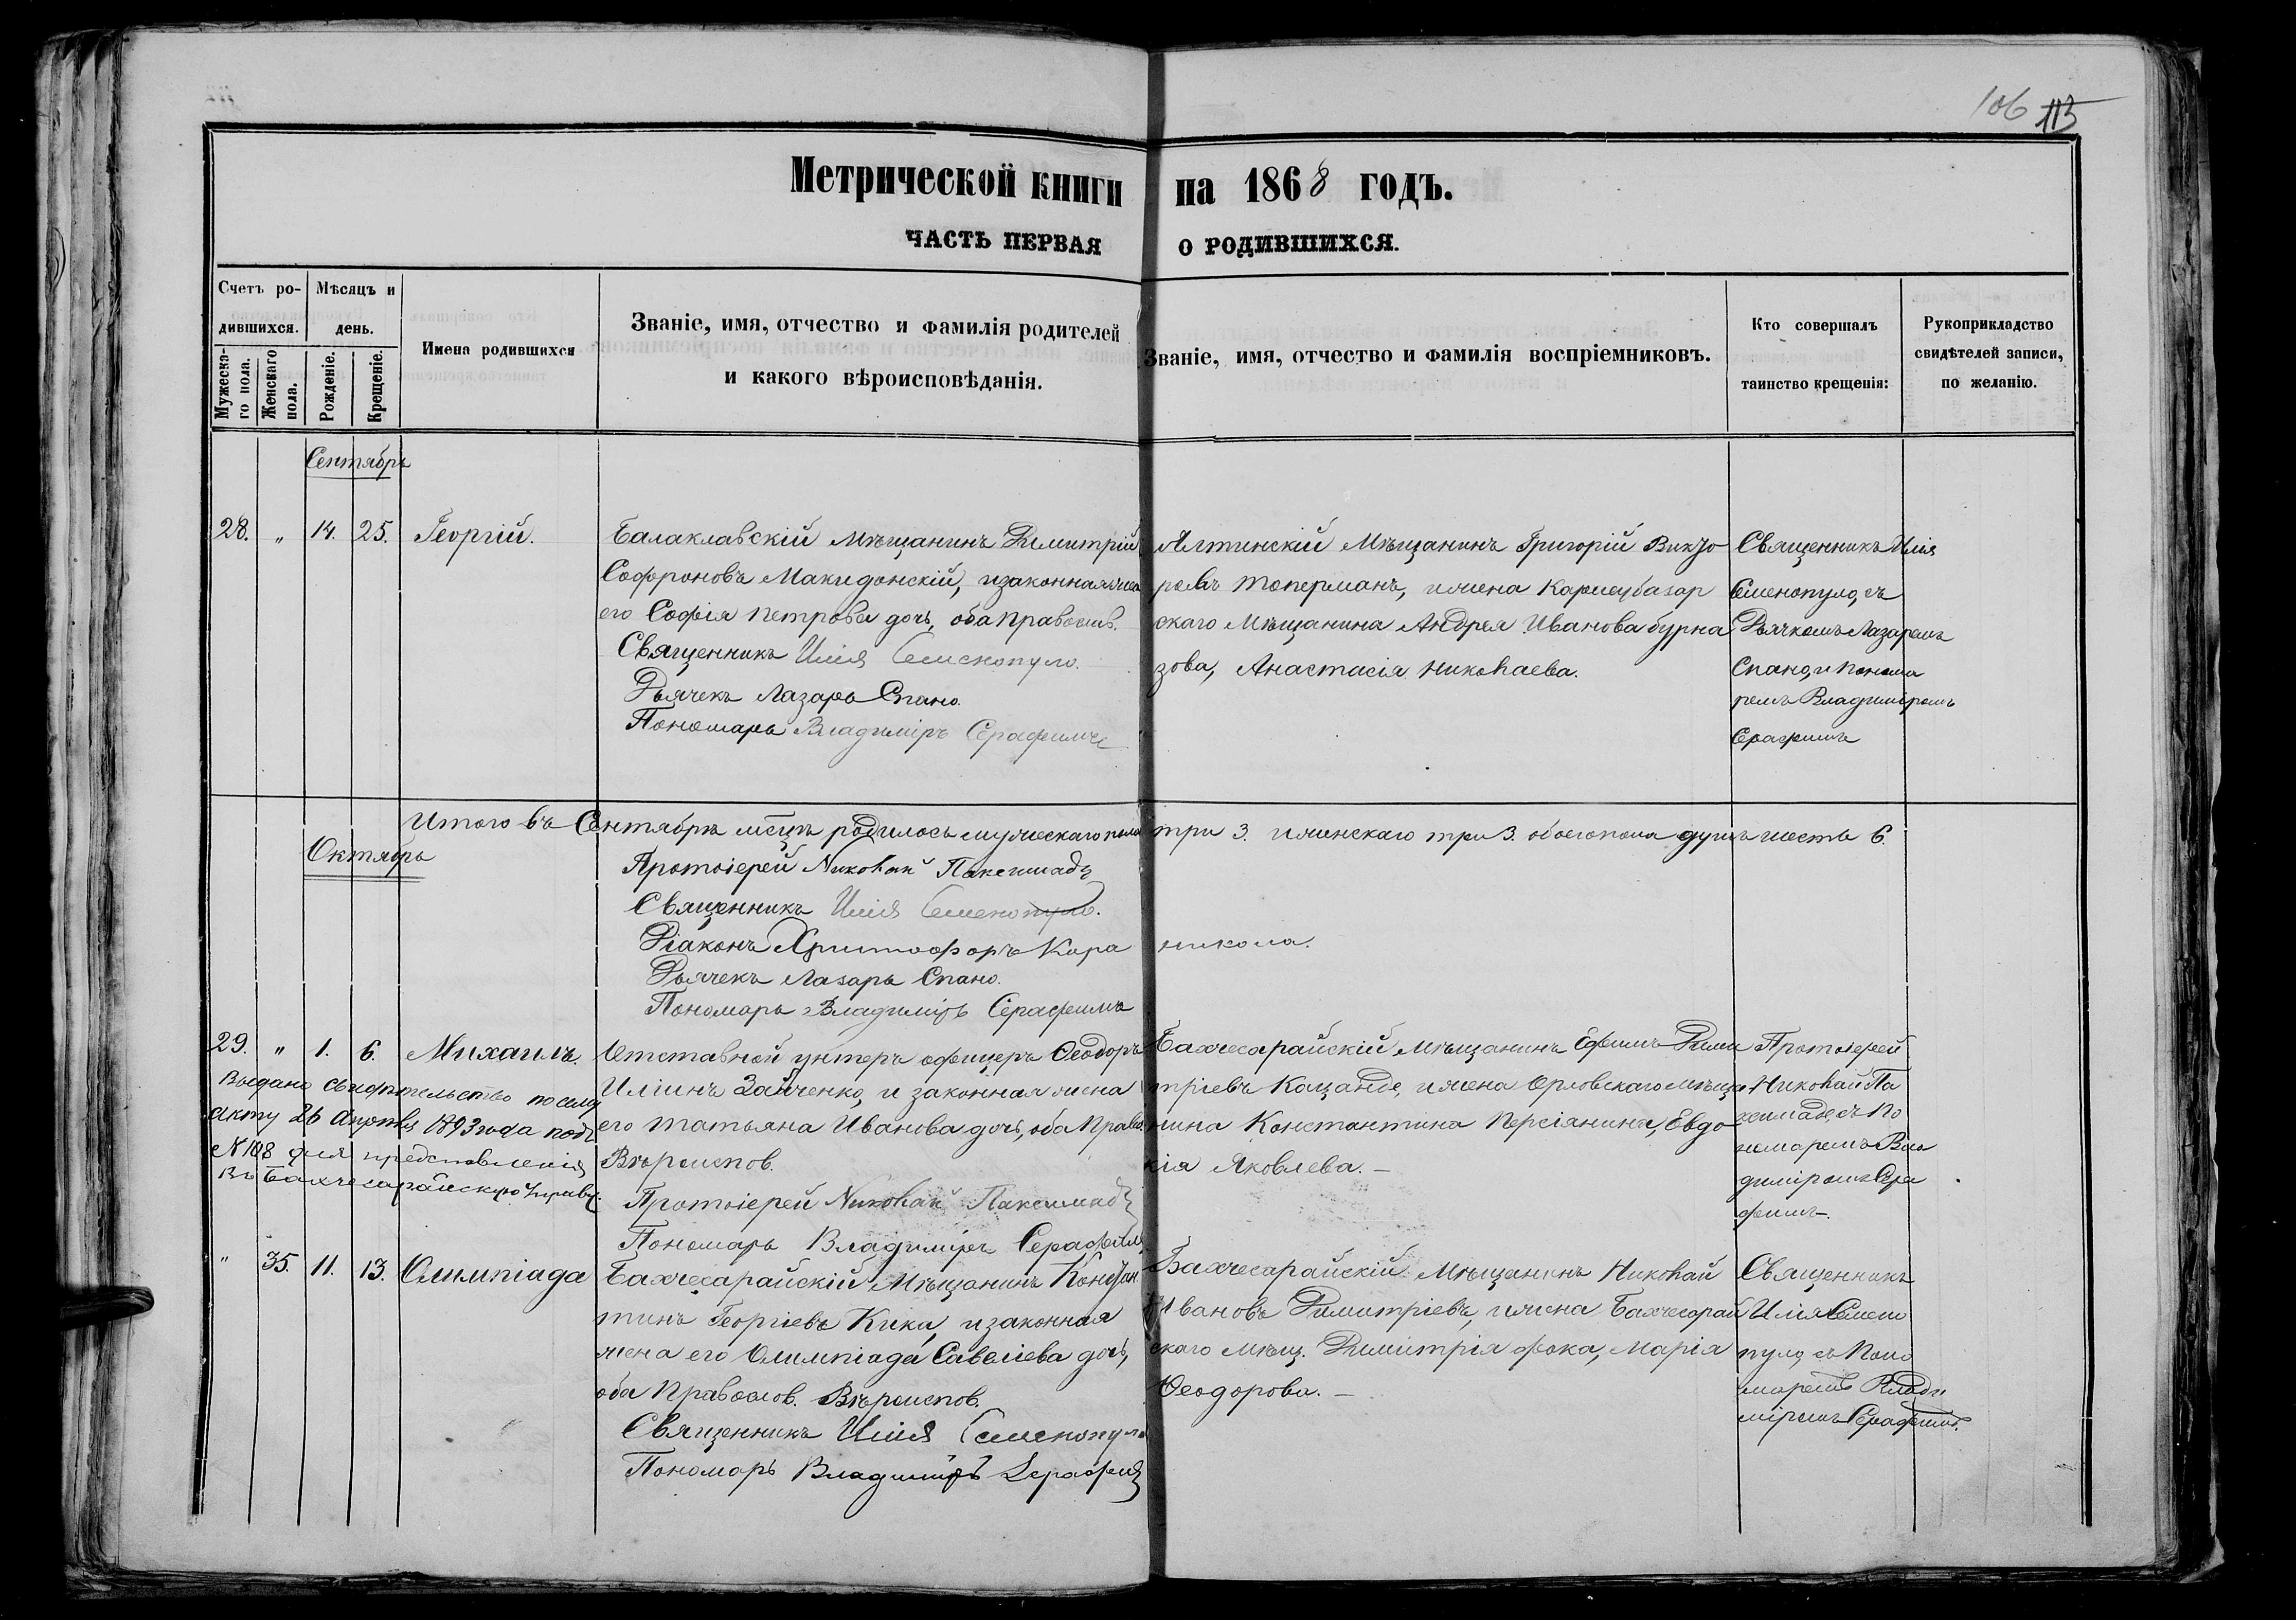 106 113
Метрической книги на 1868 годъ.
ЧАСТЬ ПЕРВАЯ О РОДИВШИХСЯ.
Счетъ родившихся.
Мужеска-
го пола.
Женскаго
пола.
Мѣсяцъ и
день.
Рожденіе.
Крещеніе.
Имена родившихся
Званіе, имя, отчество и фамилія родителей
и какого вѣроисповѣданія.
Званіе, имя, отчество и фамилія воспріемниковъ.
Кто совершалъ
таинство крещенія:
Рукоприкладство
свидѣтелей записи,
по желанію.
Сентябрь
28. " 14. 25. Георгій.
Балаклавскій Мѣщанинъ Димитрій
Софроновъ Македонскій, и законная жена
его Софія Петрова дочь, оба Православ.
Священникъ Илія Семенопуло.
Дьячекъ Лазарь Спано.
Пономарь Владиміръ Серафимъ
Ялтинскій Мѣщанинъ Григорій Викто
ровъ Топерманъ, и жена Карасубазар
скаго Мѣщанина Андрея Иванова Бурна
зова, Анастасія Николаева.
Священникъ Илія
Семенопуло, съ
Дьячкомъ Лазаремъ
Спано, и Понома
ремъ Владиміромъ
Серафимъ
Итого въ Сентябрѣ мѣсяцѣ родилось мужескаго пола три 3. и женскаго три 3. обоего пола душъ шесть 6.
Октябрь
Протоіерей Николай Паксимадъ
Священникъ Илія Семенопуло.
Діаконъ Христофоръ Кара никола.
Дьячекъ Лазарь Спано.
Пономарь Владиміръ Серафимъ
29. " 1. 6. Михаилъ.
Выдано свидѣтельство по сему
акту 26 Апрѣля 1893 года подъ
№ 108 для представленія
въ Бахчесарайскую Управу.
Отставной унтеръ офицеръ Ѳеодоръ
Илiинъ Зайченко, и законная жена
его Татьяна Иванова дочь, оба Правос.
Вѣроиспов.
Протоіерей Николай Паксимадъ
Пономарь Владиміръ Серафимъ
Бахчесарайскій Мѣщанинъ Ефимъ Дими
тріевъ Кацанде, и жена Орловскаго мѣща
нина Константина Персіянина, Евдо
кія Яковлева. –
Протоіерей
Николай Па
ксимадъ, съ По
номаремъ Вла
диміромъ Сера
фимъ –.
" 35. 11. 13. Олимпіада
Бахчесарайскій Мѣщанинъ Констан
тинъ Георгіевъ Кики, и законная
жена его Олимпіада Савеліева дочь,
оба Православ. Вѣроиспов.
Священникъ Илія Семенопуло
Пономарь Владиміръ Серафимъ
Бахчесарайскій Мѣщанинъ Николай
Ивановъ Димитріевъ, и жена Бахчесарай
скаго мѣщ. Димитрія Фока, Марія
Ѳеодорова. –
Священникъ
Илія Семено
пуло, съ Поно
маремъ Влади
міромъ Серафимъ.